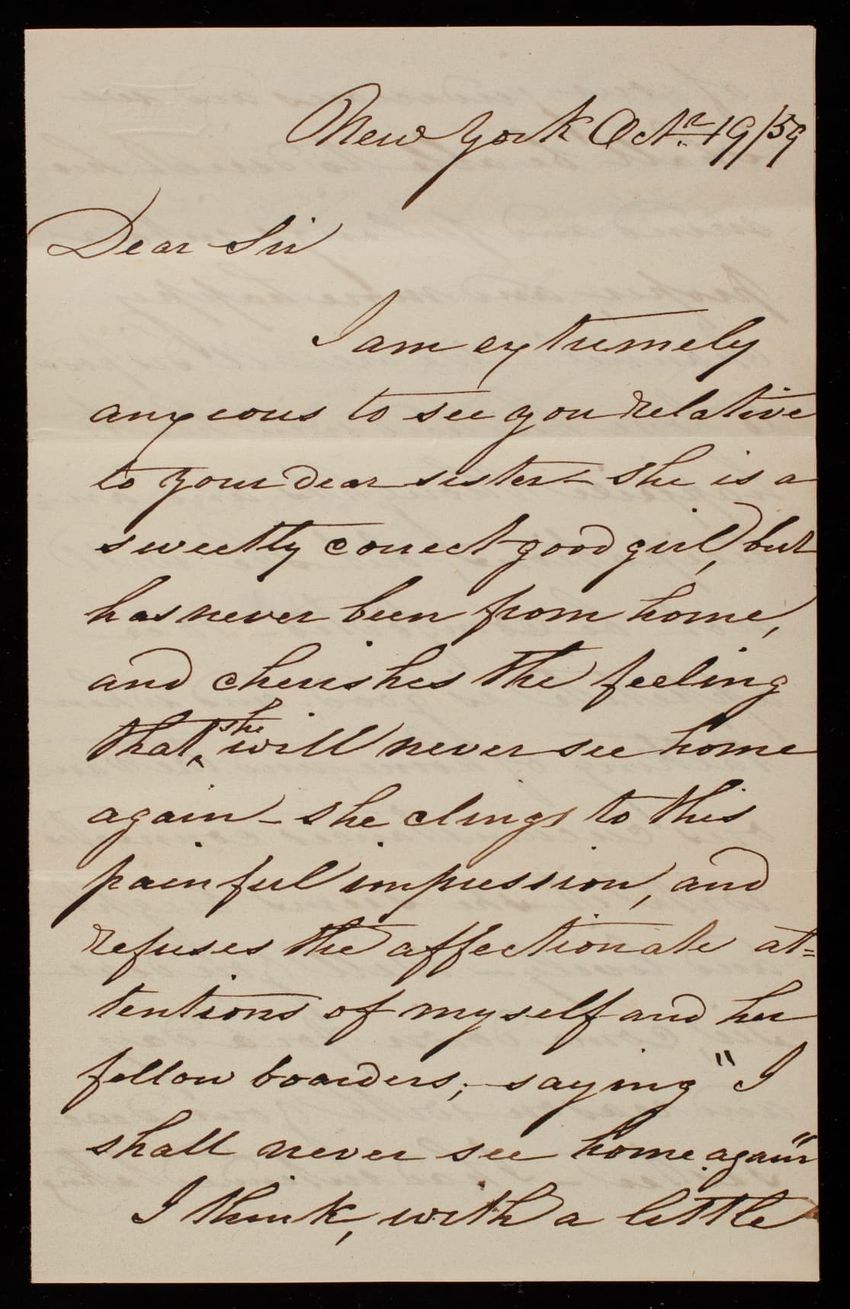 New York Octr. 19/59
Dear Sir
I am extremely
anxious to see you relative
to your dear sister - she is a
sweetly correct good girl, but
has never been from home,
and cherishes the feeling
that she will never see home
again - she clings to this
painful impression, and
refuses the affectionate at=
tentions of myself and her
fellow boarders; - saying "I
shall never see home again"
I think, with a little